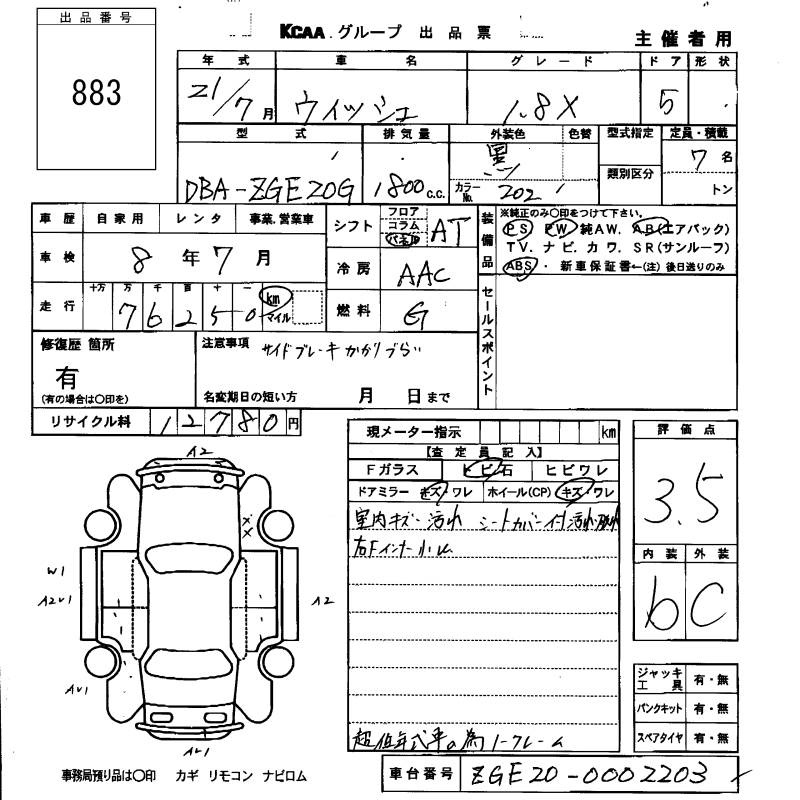 出品番号
883
KCAA.グループ 出品票
主催者用
年式 車名 グレード ドア 形状
21/7月 ウィッシュ 1.8X 5
型式 排気量 外装色 色替 型式指定 定員・積載
類別区分
DBA-ZGE20G 1800c.c. 黒 カラーNo. 202 7名 トン
車歴 自家用 レンタ 事業.営業車
車検 8年7月
走行 十万 万 千 百 十 一
76250 km マイル
シフト フロア コラム パネル AT
冷房 AAC
燃料 G
装備品
※純正のみ○印をつけて下さい。
PS PW 純AW. AB(エアバック)
TV. ナビ. カワ. SR(サンルーフ)
ABS・新車保証書←(注)後日送りのみ
セールスポイント
修復歴 箇所
有
(有の場合は○印を)
注意事項 サイドブレーキかかりづらい
名変期日の短い方 月 日まで
リサイクル料 12780円
現メーター指示 km
【査定員記入】
Fガラス トビ石 ヒビワレ
ドアミラー キズ・ワレ ホイール(CP) キズ・ワレ
室内キズ・汚れ シートカバー付汚れ破れ
右Fインナー小ハム
超低年式車の為ノークレーム
評価点
3.5
内装 外装
b C
ジャッキ工具 有・無
パンクキット 有・無
スペアタイヤ 有・無
A2
W1
A2U1
A2
AU1
AU1
事務局預り品は○印 カギ リモコン ナビロム
車台番号 ZGE20-0002203